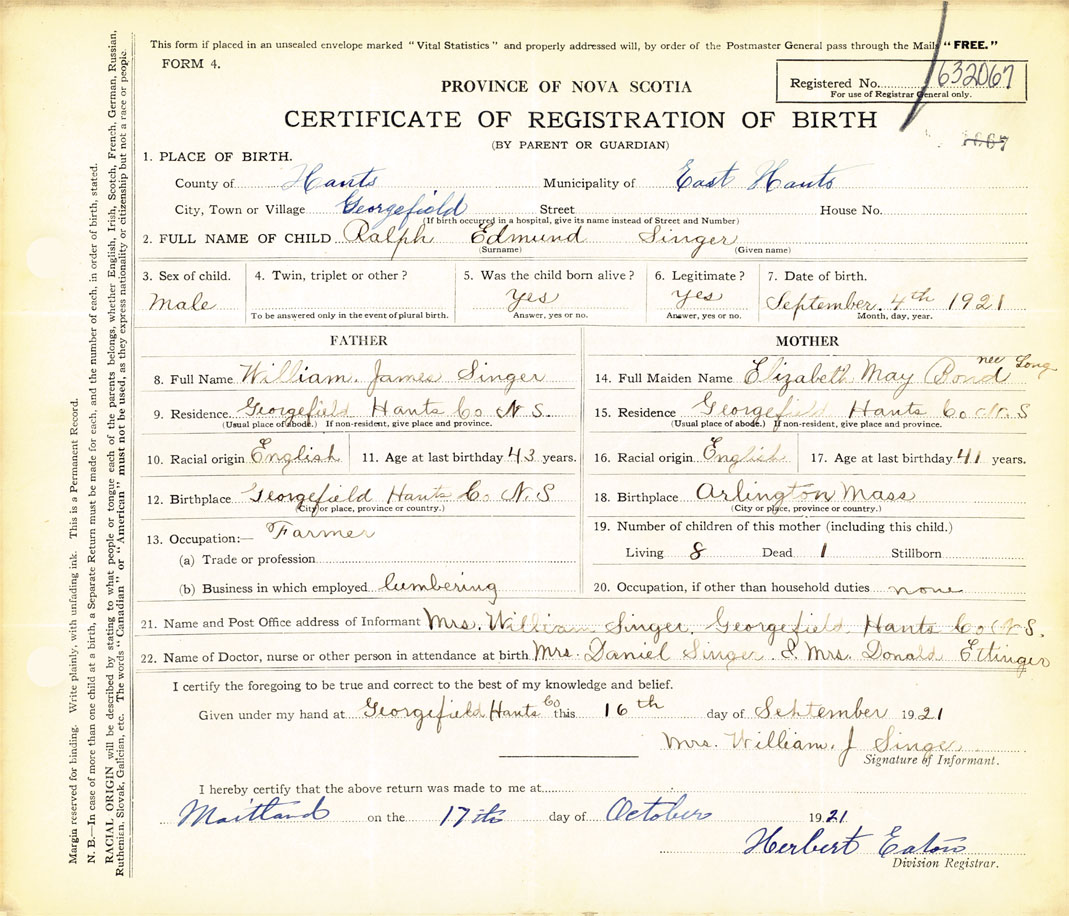 This form if placed in an unsealed envelope marked "Vital Statistics" and properly addressed will, by order of the Postmaster General pass through the Mails "FREE."
FORM 4.
Registered No. 632067
For use of Registrar General only.
PROVINCE OF NOVA SCOTIA
CERTIFICATE OF REGISTRATION OF BIRTH
(BY PARENT OR GUARDIAN)
1. PLACE OF BIRTH.
County of Hants Municipality of East Hants
City, Town or Village Georgefield Street House No.
(If birth occurred in a hospital, give its name instead of Street and Number)
2. FULL NAME OF CHILD Ralph Edmund Singer
(Surname) (Given name)
3. Sex of child. 4. Twin, triplet or other? 5. Was the child born alive? 6. Legitimate? 7. Date of birth.
male yes yes September. 4th 1921
To be answered only in the event of plural birth. Answer, yes or no. Answer, yes or no. Month, day, year.
FATHER
8. Full Name William. James Singer
9. Residence. Georgefield Hants Co N.S.
(Usual place of abode.) If non-resident, give place and province.
10. Racial origin English 11. Age at last birthday 43 years.
12. Birthplace Georgefield Hants Co N.S
(City or place, province or country.)
13. Occupation:— Farmer
(a) Trade or profession
(b) Business in which employed lumbering
MOTHER
nee Long
14. Full Maiden Name Elizabeth May Bond
15. Residence Georgefield Hants Co. N.S
(Usual place of abode.) If non-resident, give place and province.
16. Racial origin English 17. Age at last birthday 41 years.
18. Birthplace Arlington Mass
(City or place, province or country.)
19. Number of children of this mother (including this child.)
Living 8 Dead 1 Stillborn
20. Occupation, if other than household duties none
21. Name and Post Office address of Informant Mrs. William Singer. Georgefield Hants Co N.S.
22. Name of Doctor, nurse or other person in attendance at birth Mrs. Daniel Singer & Mrs. Donald Ettinger
I certify the foregoing to be true and correct to the best of my knowledge and belief.
Given under my hand at Georgefield Hants Co this 16th day of September 1921
Mrs. William. J Singer
Signature of Informant.
I hereby certify that the above return was made to me at
Maitland on the 17th day of October 1921
Herbert Eaton
Division Registrar.
Margin reserved for binding. Write plainly, with unfading ink. This is a Permanent Record.
N. B.—In case of more than one child at a birth, a Separate Return must be made for each, and the number of each, in order of birth, stated.
RACIAL ORIGIN will be described by stating to what people or tongue each of the parents belongs, whether English, Irish, Scotch, French, German, Russian,
Ruthenian, Slovak, Galician, etc. The words "Canadian" or "American" must not be used, as they express nationality or citizenship but not a race or people.